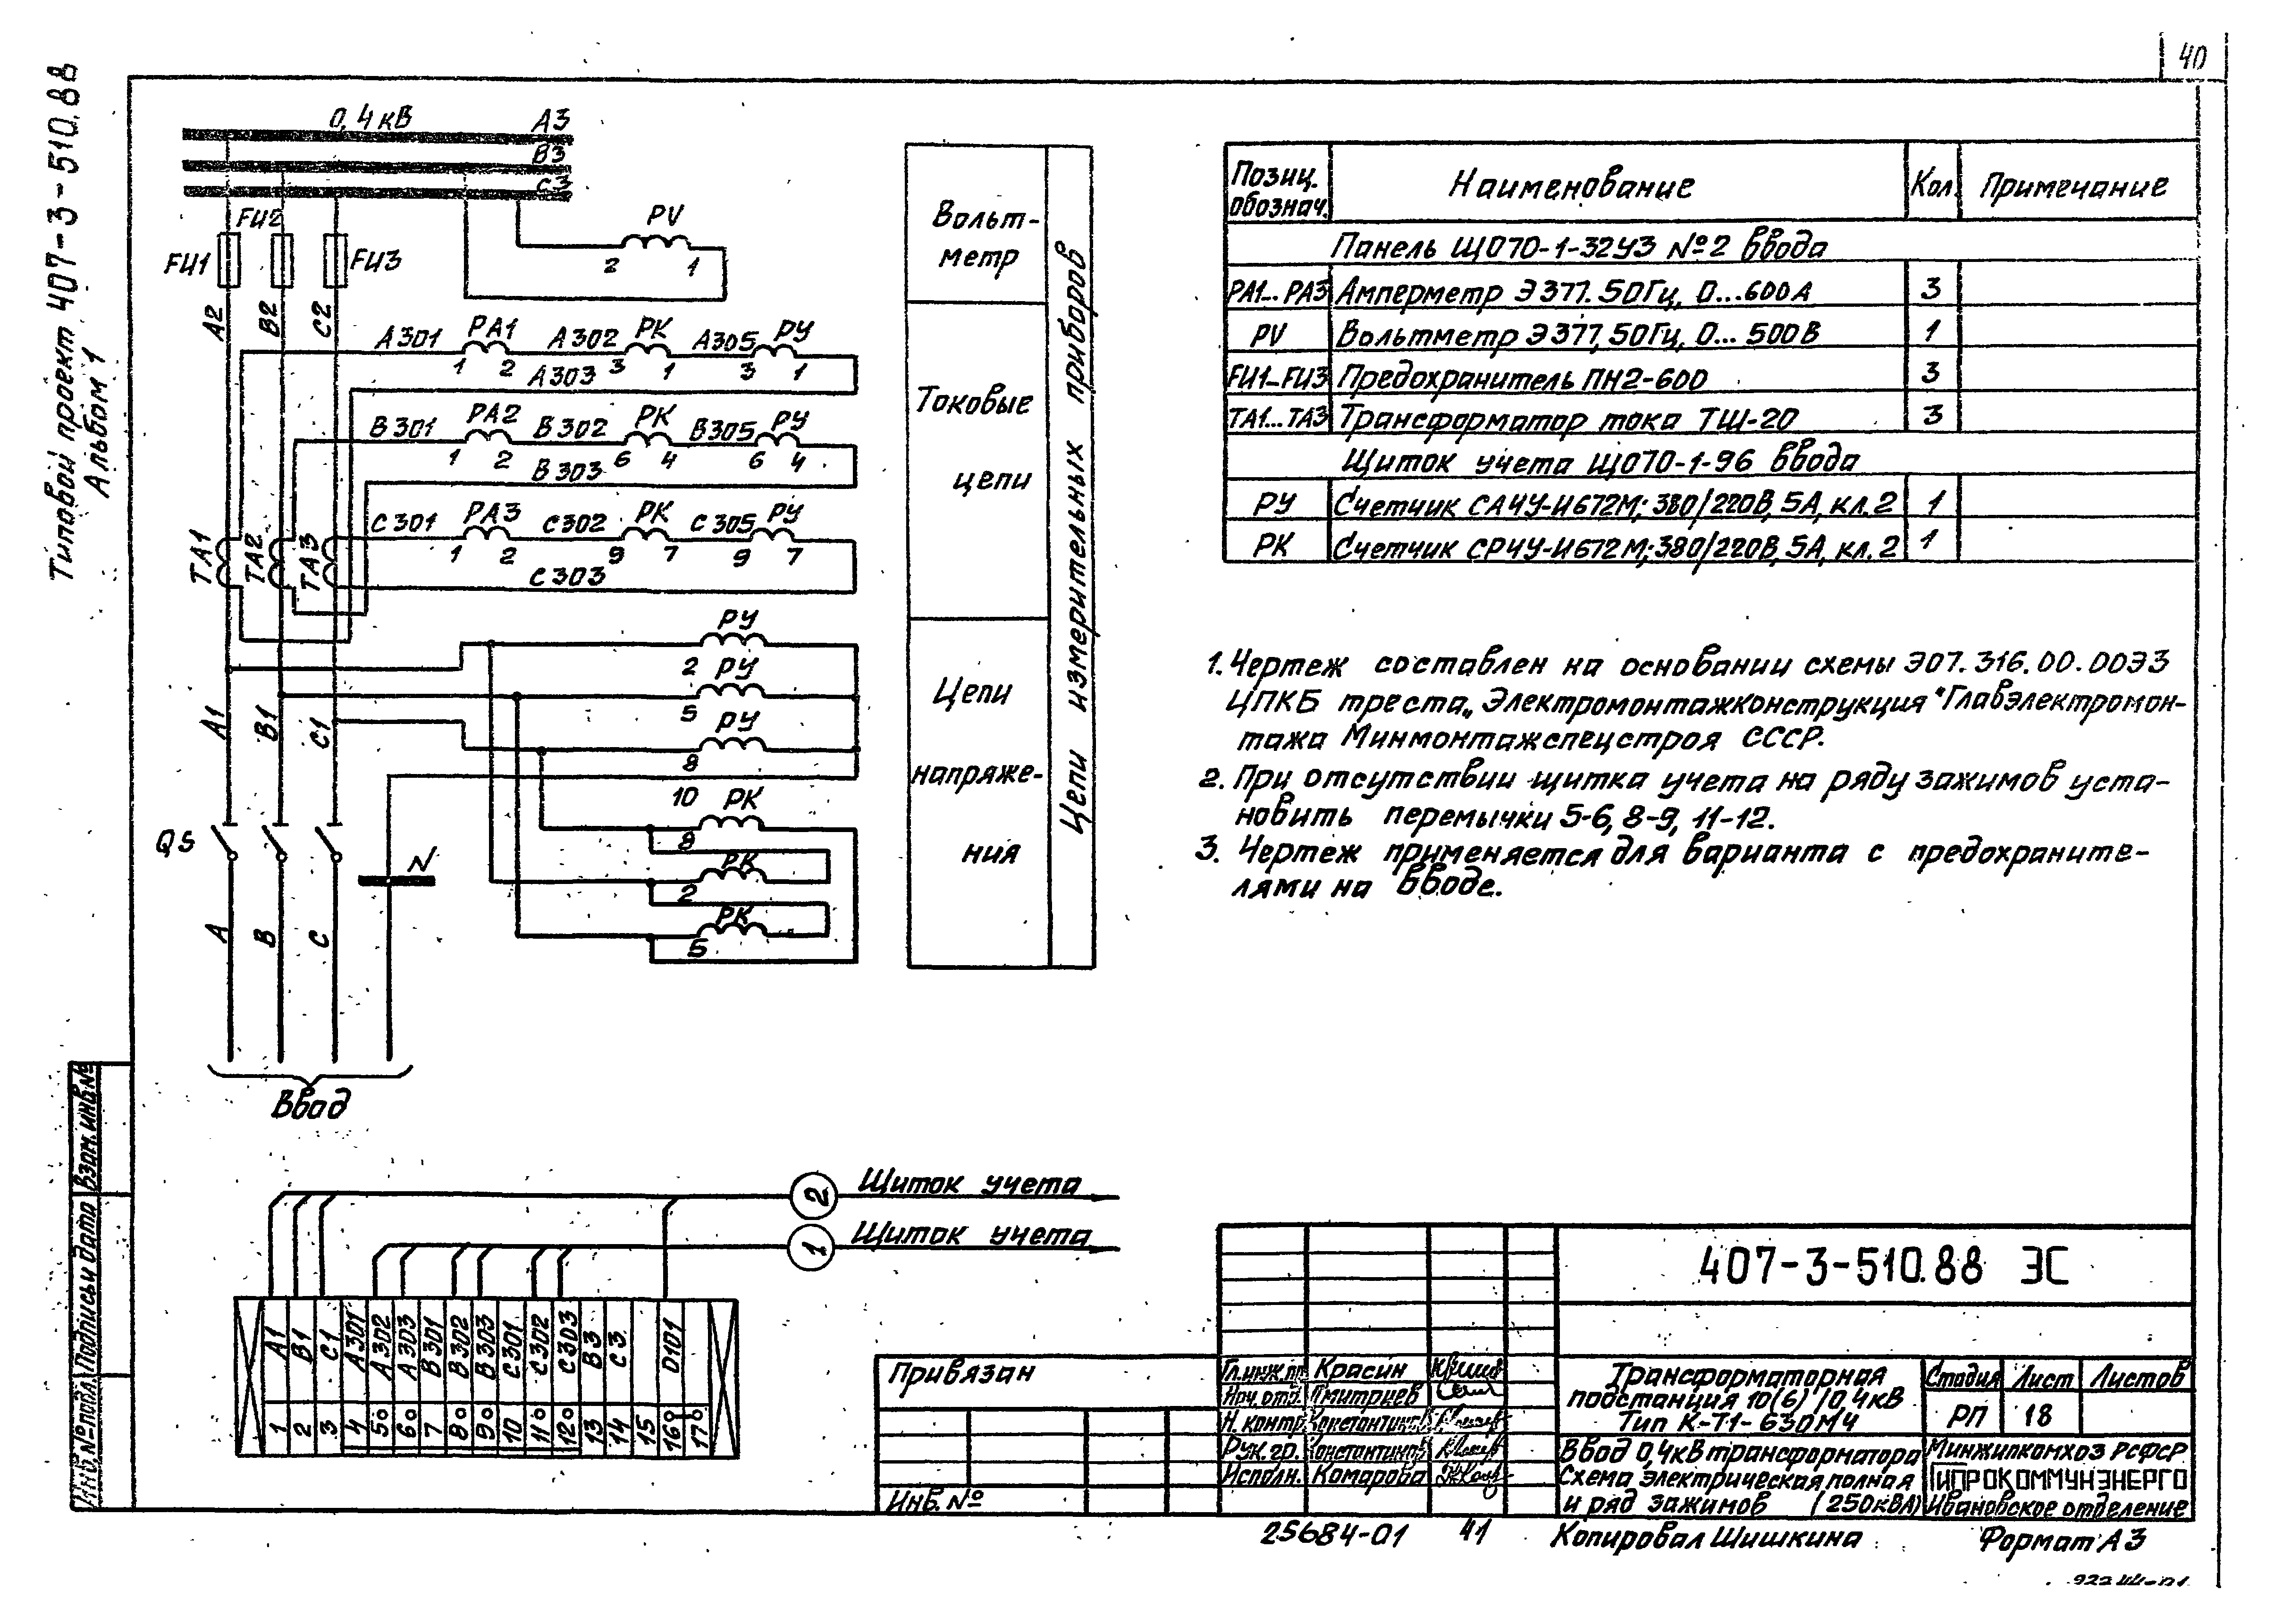 40
Типовой проект 407-3-510.88
Альбом 1
0,4кВ
А3
В3
С3
FU1
FU2
FU3
PV
2 1
А2
В2
С2
А301 РА1 А302 РК А305 РУ
1 2 3 1 3 1
А303
В301 РА2 В302 РК В305 РУ
1 2 6 4 6 4
В303
С301 РА3 С302 РК С305 РУ
1 2 9 7 9 7
С303
ТА1
ТА2
ТА3
РУ
2
РУ
5
РУ
8
10
РК
8
РК
2
РК
5
А1
В1
С1
QS
N
А
В
С
Ввод
Вольт-
метр
Токовые
цепи
Цепи
напряже-
ния
Цепи измерительных приборов
Позиц. обознач. Наименование Кол. Примечание
Панель ЩО70-1-32У3 №2 ввода
РА1...РА3 Амперметр Э377. 50Гц, 0...600А 3
PV Вольтметр Э377, 50Гц, 0...500В 1
FU1-FU3 Предохранитель ПН2-600 3
ТА1...ТА3 Трансформатор тока ТШ-20 3
Щиток учета ЩО70-1-96 ввода
РУ Счетчик СА4У-И672М; 380/220В, 5А, кл.2 1
РК Счетчик СР4У-И672М; 380/220В, 5А, кл.2 1
1. Чертеж составлен на основании схемы Э07.316.00.00Э3
ЦПКБ треста „Электромонтажконструкция" Главэлектромон-
тажа Минмонтажспецстроя СССР.
2. При отсутствии щитка учета на ряду зажимов уста-
новить перемычки 5-6, 8-9, 11-12.
3. Чертеж применяется для варианта с предохраните-
лями на вводе.
2 Щиток учета
1 Щиток учета
А1 В1 С1 А301 А302 А303 В301 В302 В303 С301 С302 С303 В3 С3 D101
1 2 3 4 5о 6о 7 8о 9о 10 11о 12о 13 14 15 16о 17о
Взам. инв.№
Подпись и дата
Инв.№ подл.
Привязан
Инв. №
Гл.инж.пр. Красин
Нач. отд. Дмитриев
Н. контр.
Рук. гр.
Исполн. Комарова
407-3-510.88 ЭС
Трансформаторная
подстанция 10(6)/0,4кВ
Тип К-Т1-630М4
Стадия Лист Листов
РП 18
Ввод 0,4кВ трансформатора
Схема электрическая полная
и ряд зажимов (250кВА)
Минжилкомхоз РСФСР
ГИПРОКОММУНЭНЕРГО
Ивановское отделение
25684-01 41
Копировал Шишкина
Формат А3